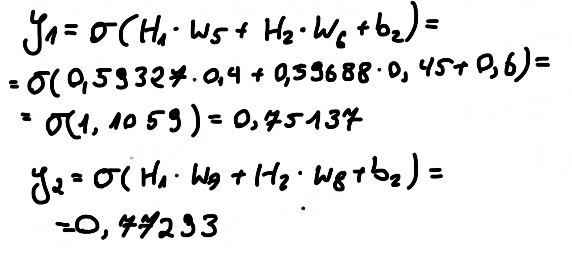 y₁ = σ(H₁ · w₅ + H₂ · w₆ + b₂) =
= σ(0,59327 · 0,4 + 0,59688 · 0,45 + 0,6) =
= σ(1,1059) = 0,75137
y₂ = σ(H₁ · w₉ + H₂ · w₈ + b₂) =
= 0,77293